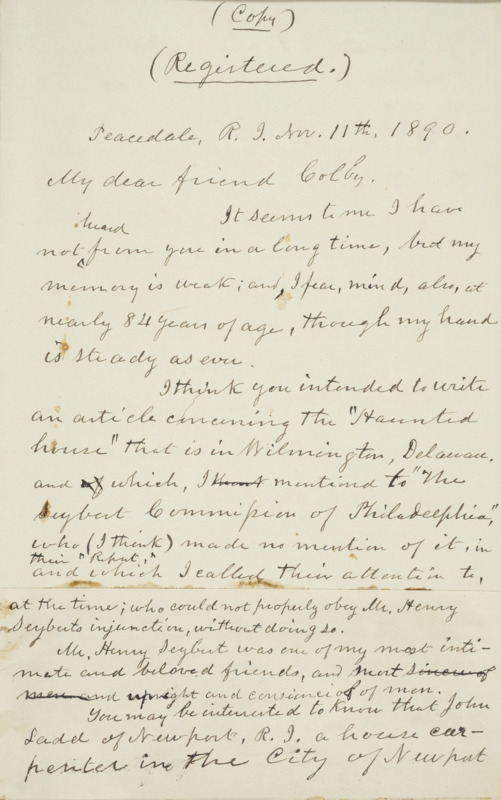 (Copy)
(Registered.)
Peacedale, R. I. Nov. 11th, 1890.
My dear friend Colby.
It seems to me I have
heard
not from you in a long time, but my
memory is weak; and, I fear, mind, also, at
nearly 84 years of age, though my hand
is steady as ever.
I think you intended to write
an article concerning the "Haunted
house" that is in Wilmington, Delaware.
and of which, I mentiond to "The
Seybert Commission of Philadelphia",
who (I think) made no mention of it, in
their "Report,"
and which I called their attention to,
at the time; who could not properly obey Mr. Henry
Seyberts injunction, without doing so.
Mr. Henry Seybert was one of my most inti-
mate and beloved friends, and most sincere of
men and upright and of men.
You may be interested to know that John
Ladd of Newport, R. I. a house car-
penter in the City of Newport